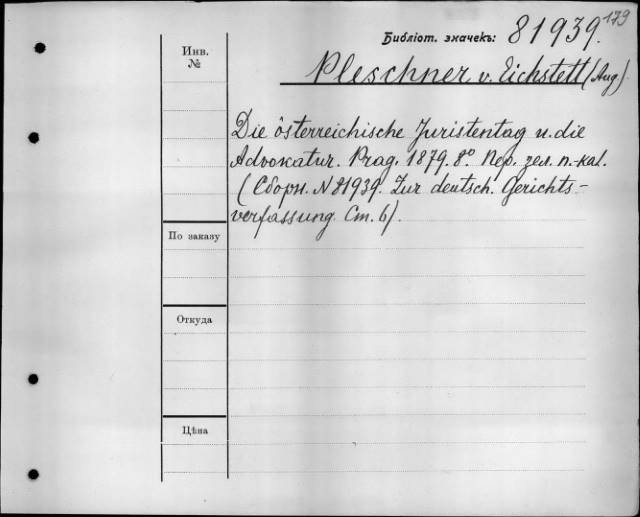 179
Библіот. значекъ: 81939.
Инв.
№
Pleschner v. Eichstett (Aug).
Die österreichische Juristentag u. die
Advokatur. Prag. 1879. 8° Пер. зел. п.-кал.
(Сборн. N 81939. Zur deutsch. Gerichts-
verfassung. Ст. 6).
По заказу
Откуда
Цѣна